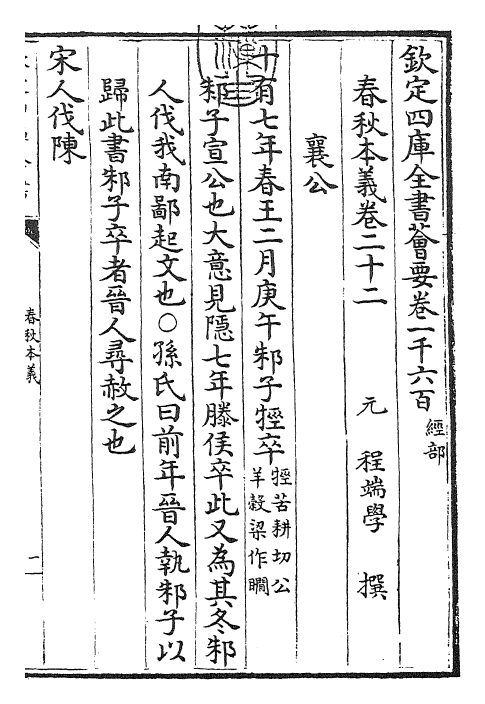 欽定四庫全書薈要卷一千六百 經部
春秋本義卷二十二 元 程端學 撰
襄公
十有七年春王二月庚午邾子牼卒 牼苦耕切公羊穀梁作瞷
邾子宣公也大意見隱七年滕侯卒此又為其冬邾
人伐我南鄙起文也○孫氏曰前年晉人執邾子以
歸此書邾子卒者晉人尋赦之也
宋人伐陳
春秋本義